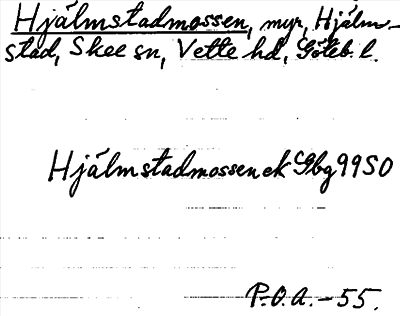 Hjälmstadmossen, myr, Hjälm-
stad, Skee sn, Vette hd, Göteb. l.
Hjälmstadmossen ek Gbg 99 SO
P.O.A. -55.